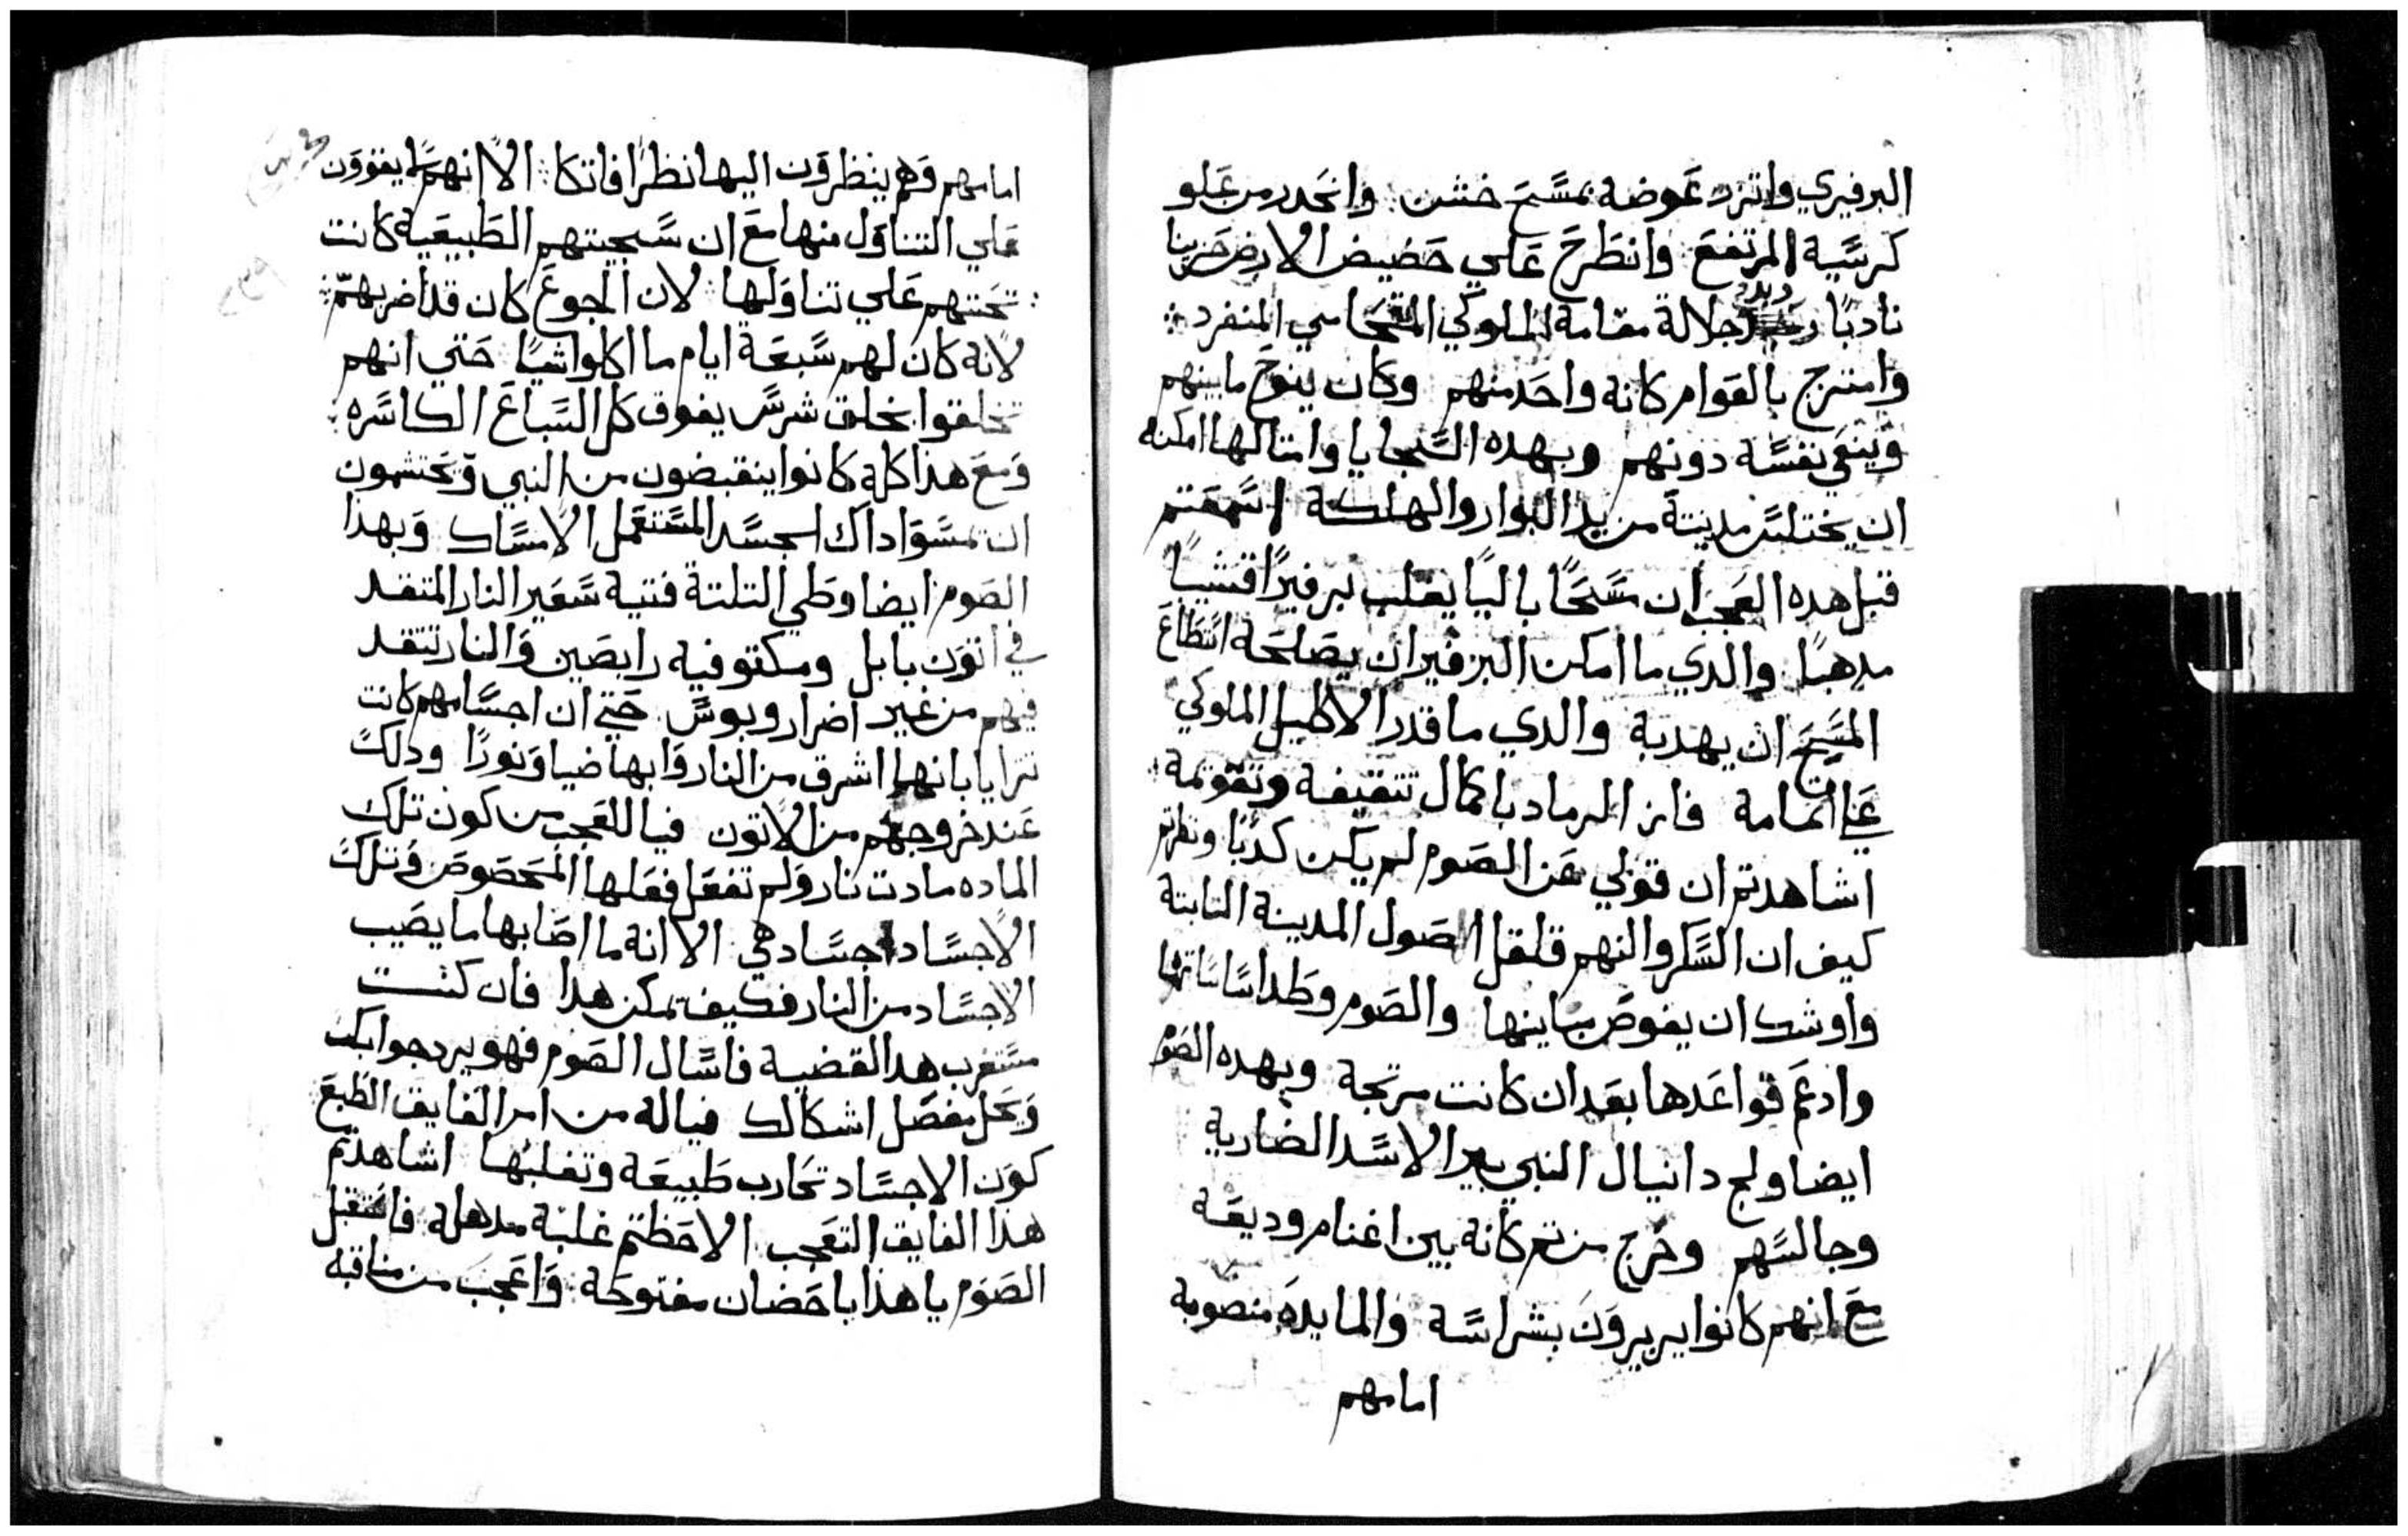 البرفيري واتزر عوضه بمسح خشن وانحدر من علو
كرسيه المرتفع وانطرح علي حضيض الارض حزينا
نادبًا جلالة مقامه الملوكي المنفرد
وامتزج بالقوام كانه واحد منهم وكان ينوح مابينهم
وينعي نفسه دونهم وبهده السجايا وامتالها امكنه
ان يختلس مدينتة من يد البوار والهلكة اسمعتم
قبل هده العجب ان مسحًا باليًا يغلب برفيرًا قشيبًا
مدهبًا والدي ما امكن البرفير ان يصلحه استطاع
المسح ان يهدبه والدي ما قدر الاكليل الملوكي
علي اتمامه فاز الرماد باكمال تتقيفه وتقويمه
اشاهدتم ان قولي عن الصوم لم يكن كدبًا ونظرتم
كيف ان السكر والنهم قلقل اصول المدينة التابتة
واوشك ان يقوض مباينها والصوم وطد اساساتها
وادعم قواعدها بعد ان كانت مرتجة وبهده الصوم
ايضا ولج دانيال النبي بير الاسد الضارية
وجالسهم وخرج من تم كانه بين اغنام وديعة
مع انهم كانوا يريرون بشراسة والمايده منصوبه
امامهم
امامهم وهم ينظرون اليها نظرًا فاتكا الا انهم ما يقوون
علي التناول منها مع ان سجيتهم الطبيعية كانت
تحتهم علي تناولها لان الجوع كان قد اضر بهم
لانه كان لهم سبعة ايام ما اكلوا شيًا حتي انهم
تخلقوا بخلق شرس يفوق كل السباع الكاسره
ومع هدا كله كانوا ينقبضون من النبي ويحتشمون
ان تمسوا داك الجسد المستعمل الامساك وبهدا
الصوم ايضا وطي التلتة فتية سعير النار المتقد
في اتون بابل ومكتو فيه رابصين والنار تتقد
فيهم من غير اضرار وبوس حتي ان اجسامهم كانت
ترايا بانها اشرق من النار وابها ضيا ونورًا ودلك
عند خروجهم من الاتون فيا للعجب من كون تلك
الماده مادت نار ولم تفعل فعلها المخصوص وتلك
الاجساد اجساد هي الا انه ما اصابها ما يصيب
الاجساد من النار فكيف تمكن هدا فان كنت
مستغرب هدا القضية فاسال الصوم فهو يرد جوابك
ويحل بفصل اشكالك فياله من امر الفايق الطبع
كون الاجساد تحارب طبيعة وتغلبها اشاهدتم
هدا الفايق التعجب الاحظتم غلبة مدهلة فاستقبل
الصوم يا هدا باحضان مفتوحة واعجب من مناقبه